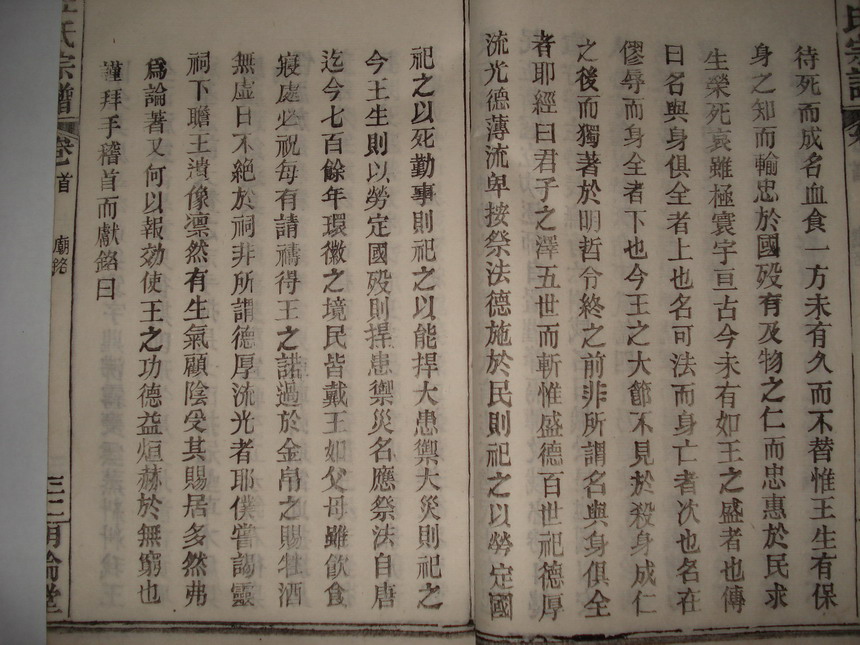 待死而成名血食一方未有久而不替惟王生有保
身之知而輸忠於國歿有及物之仁而忠惠於民求
生榮死哀雖極寰宇亘古今未有如王之盛者也傳
曰名與身俱全者上也名可法而身亡者次也名在
僇辱而身全者下也今王之大節不見於殺身成仁
之後而獨著於明哲令終之前非所謂名與身俱全
者耶經曰君子之澤五世而斬惟盛德百世祀德厚
流光德薄流卑按祭法德施於民則祀之以勞定國
祀之以死勤事則祀之以能捍大患禦大災則祀之
今王生則以勞定國歿則捍患禦災名應祭法自唐
迄今七百餘年環徽之境民皆戴王如父母雖飲食
寢處必祝每有請禱得王之諾過於金帛之賜牲酒
無虛日不絕於祠非所謂德厚流光者耶僕嘗謁靈
祠下瞻王遺像凛然有生氣顧陰受其賜居多然弗
為論著又何以報効使王之功德益烜赫於無窮也
謹拜手稽首而獻銘曰
氏宗譜
卷首
廟銘